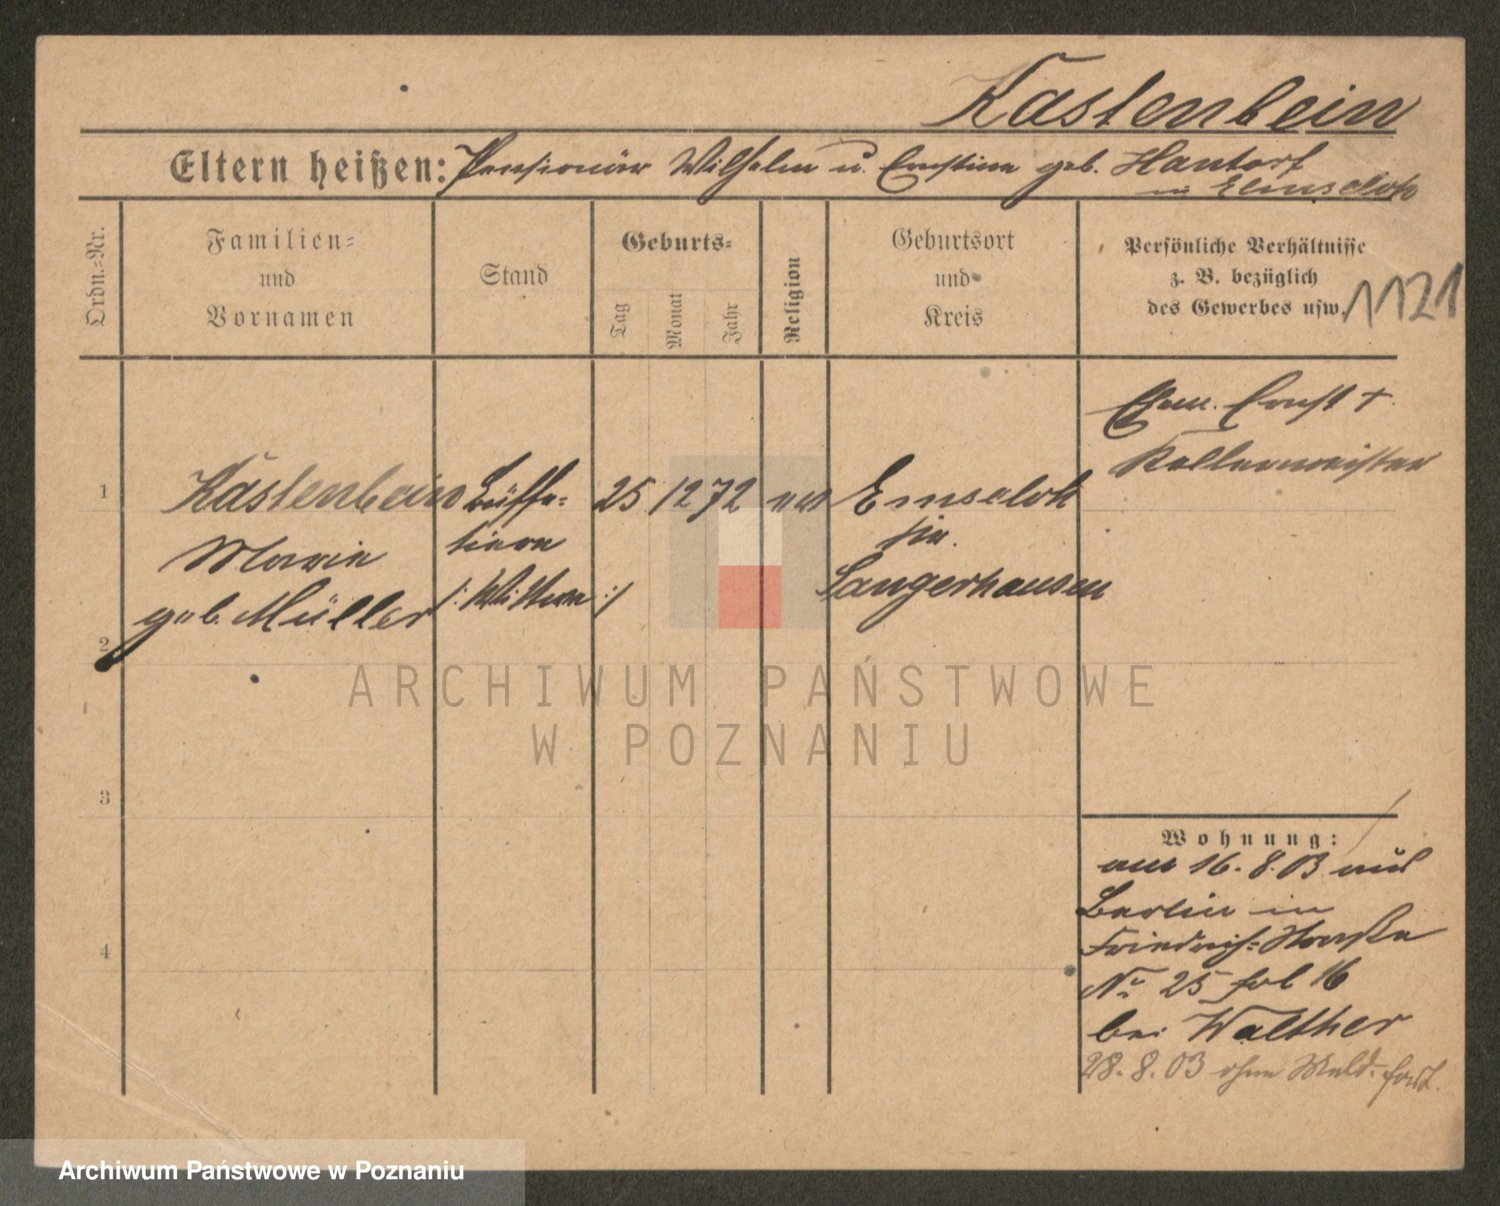 Kastenbein
Eltern heißen: Pensionär Wilhelm u. Ernstine geb. Hantorf
in Emseloh
Ordn.-Nr.
Familien-
und
Vornamen
Stand
Geburts-
Tag
Monat
Jahr
Religion
Geburtsort
und
Kreis
Persönliche Verhältnisse
z. B. bezüglich
des Gewerbes usw.
1121
Ehem. Ernst †
Kellermeister
1 Kastenbein Büffe- 25 12 72 ev Emseloh
Marie tiere Kr.
geb. Müller /: Wittwe :/ Sangerhausen
2
3
4
Wohnung:
am 16. 8. 03 aus
Berlin in
Friedrich-Straße
No 25 fol 16
bei Walther
28. 8. 03 ohne Meld. fort.
ARCHIWUM PAŃSTWOWE
W POZNANIU
Archiwum Państwowe w Poznaniu